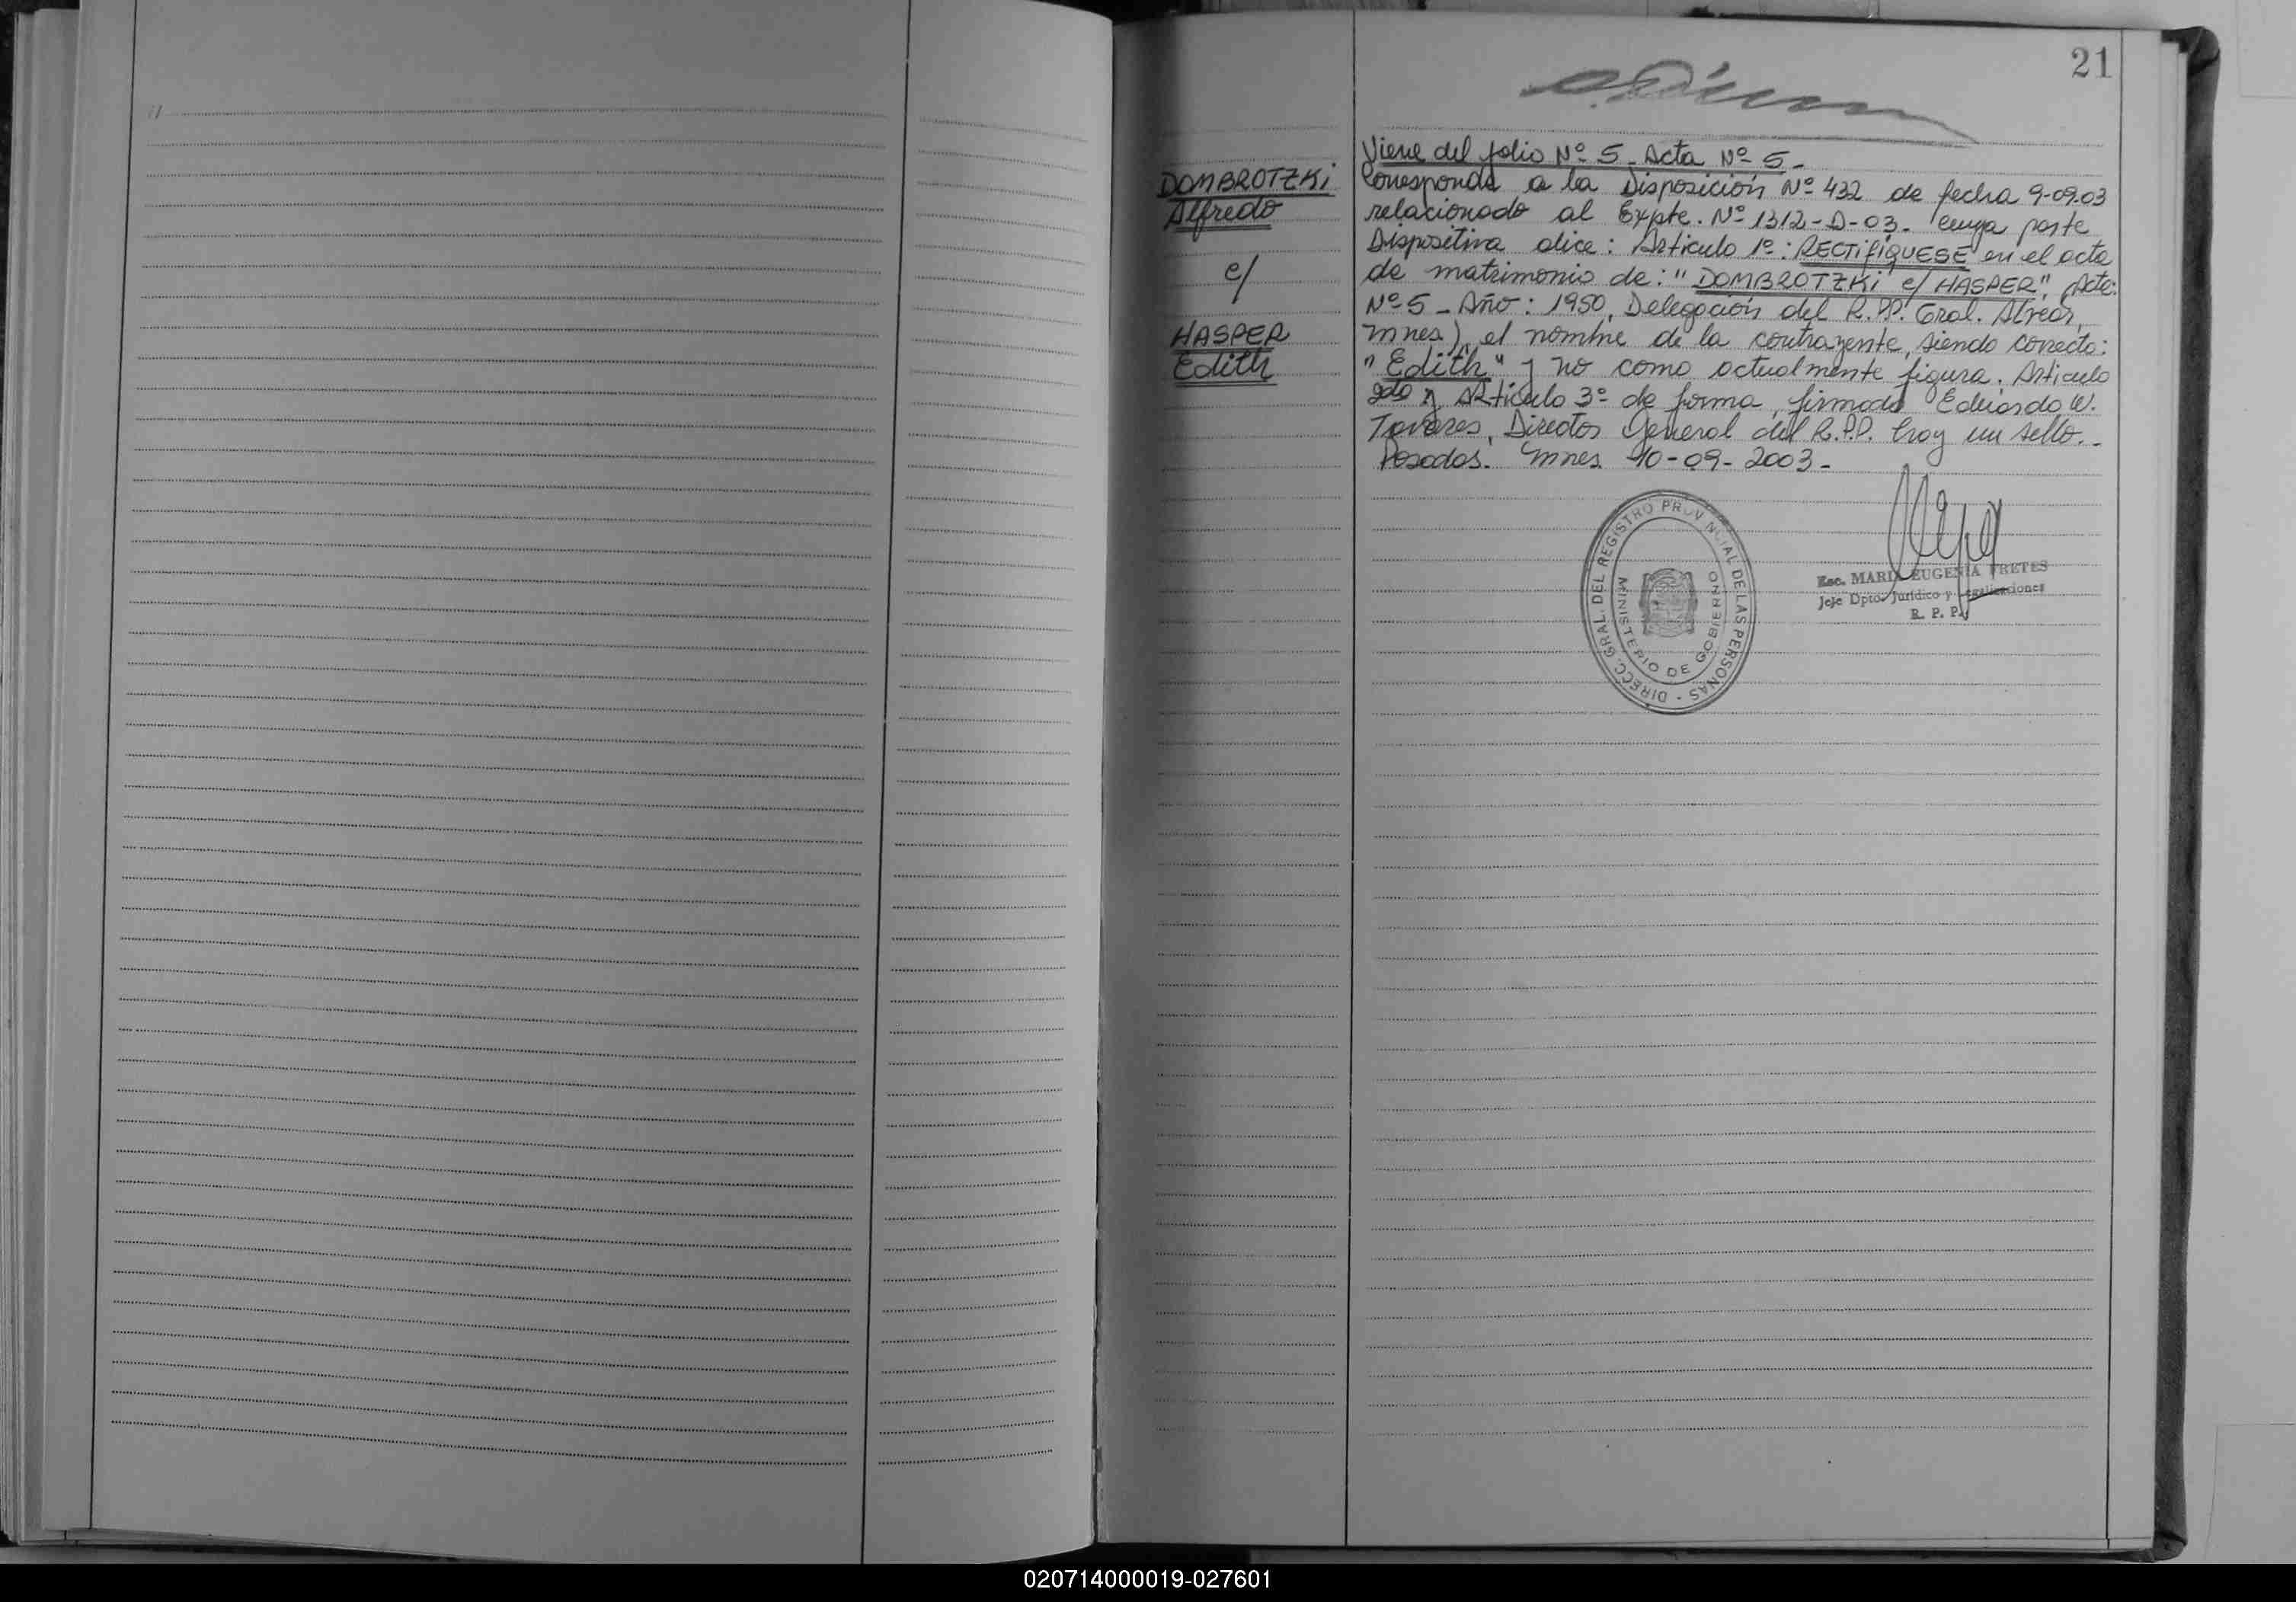 21
Viene del folio Nº 5 - Acta Nº 5 -
DOMBROTZKI
Alfredo
c/
HASPER
Edith
Corresponde a la Disposición Nº 432 de fecha 9-09-03
relacionado al Expte. Nº 1312-D-03- cuya parte
Dispositiva dice: Artículo 1º: RECTIFIQUESE en el acta
de matrimonio de: "DOMBROTZKI c/ HASPER", Acta:
Nº 5 - Año: 1950, Delegación del R.P.P. Gral. Alvear,
Mnes), el nombre de la contrayente, siendo correcto:
"Edith" y no como actualmente figura. Artículo
2do y Artículo 3º de forma, firmado Eduardo W.
Tavares, Director General del R.P.P. hay un sello.-
Posadas. Mnes 10-09-2003-
DIRECC. GRAL. DEL REGISTRO PROVINCIAL DE LAS PERSONAS -
MINISTERIO DE GOBIERNO
Esc. MARIA EUGENIA FRETES
Jefe Dpto. Jurídico y Legalizaciones
R. P. P.
020714000019-027601